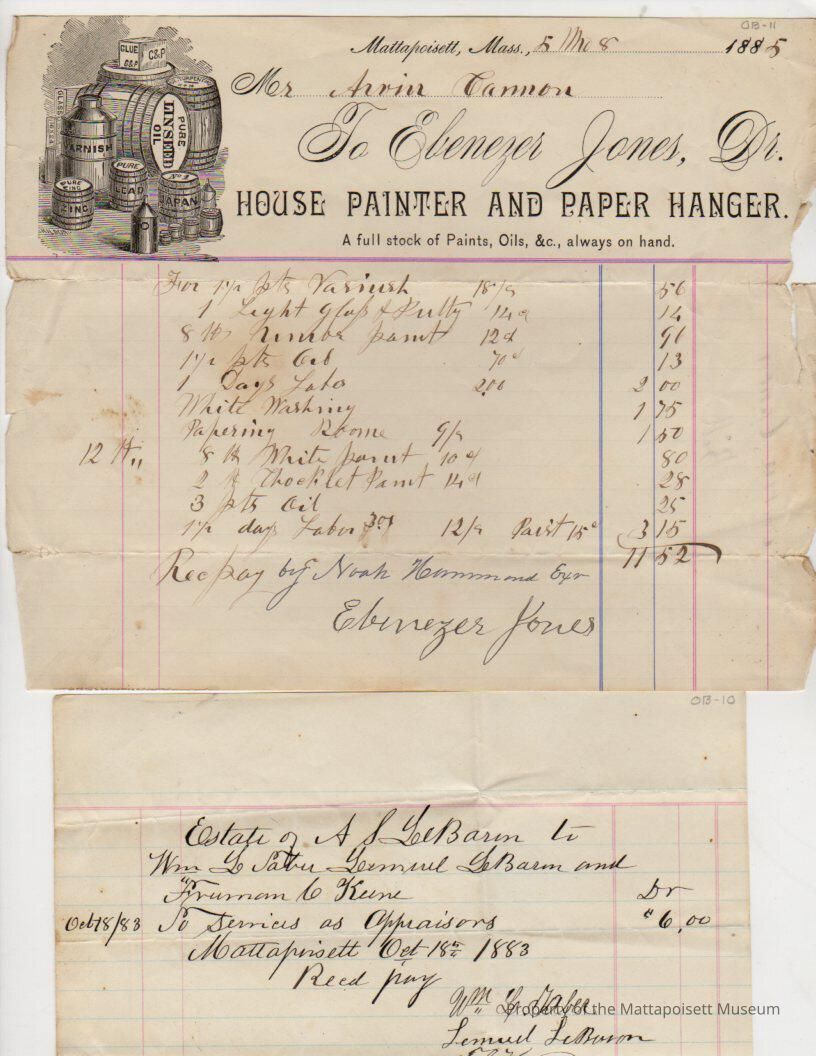 OB-11
Mattapoisett, Mass., 5 Mo 8 1885
Mr Arvin Cannon
To Ebenezer Jones, Dr.
HOUSE PAINTER AND PAPER HANGER.
A full stock of Paints, Oils, &c., always on hand.
GLUE C&P
C&P
GLASS
VARNISH
PURE LINSEED OIL
PURE ZINC
PURE LEAD
No 1 JAPAN
For 1 1/2 pts Varnish 18/a 56
1 Light Glass & Putty 14 14
8 lb paint 12 96
1 1/2 pts Oil 70 13
1 Days Labor 200 2 00
White Washing 1 75
Papering Roome 9/ 1 50
12 8 lb White paint 10 80
2 lb Chocklet Paint 14 28
3 pts Oil 25
1 1/2 days Labor 12/ Paist 15 3 15
11 52
Rec pay by Noah Hammond Exr
Ebenezer Jones
OB-10
Estate of A S LeBaron to
Wm L Faber Lemuel LeBaron and
Truman C Keene Dr
Oct 18/83 To Services as Appraisors " 6,00
Mattapoisett Oct 18th 1883
Recd pay
Wm L Faber
Property of the Mattapoisett Museum
Lemuel LeBaron